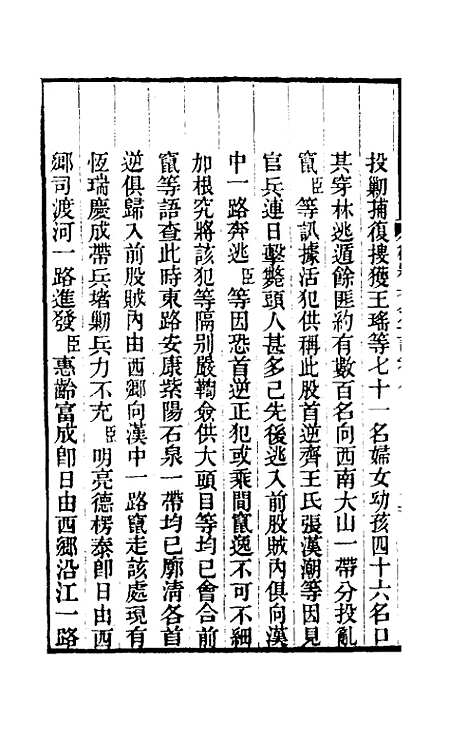 投勦捕復摟獲王瑤等七十一名婦女幼孩四十六名口
其穿林逃遁餘匪約有數百名向西南大山一帶分投亂
竄臣等訊據活犯供稱此股首逆齊王氏張漢潮等因見
官兵連日擊斃頭人甚多已先後逃入前股賊內俱向漢
中一路奔逃臣等因恐首逆正犯或乘間竄逸不可不細
加根究將該犯等隔別嚴鞫僉供大頭目等均已會合前
竄等語查此時東路安康紫陽石泉一帶均已廓清各首
逆俱歸入前股賊內由西鄉向漢中一路竄走該處現有
恆瑞慶成帶兵堵勦兵力不充臣明亮德楞泰卽日由西
鄉司渡河一路進發臣惠齡富成卽日由西鄉沿江一路